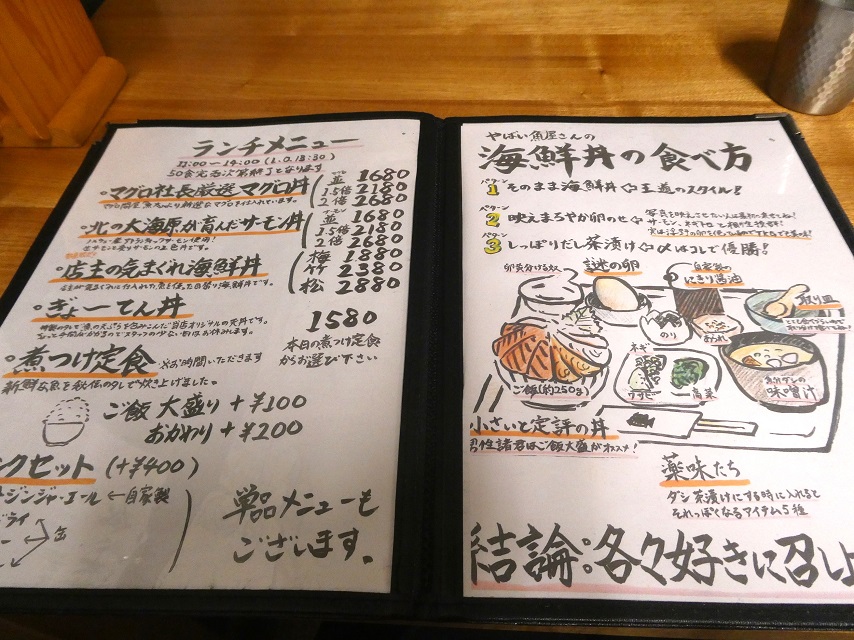 ランチメニュー
11:00〜14:00(L.O.13:30)
50食完売次第終了となります
マグロ社長厳選マグロ丼
並 1680
1.5倍 2180
2倍 2680
北の大海原が育んだサーモン丼
並 1680
1.5倍 2180
2倍 2680
店主の気まぐれ海鮮丼
梅 1880
竹 2380
松 2880
ぎょーてん丼
1580
煮つけ定食 ※お時間いただきます
本日の煮つけ定食
からお選び下さい
新鮮な魚を秘伝のタレで炊き上げました。
ご飯 大盛り +¥100
おかわり +¥200
ンクセット (+¥400)
ジンジャーエール ←自家製
ライ
缶
単品メニューも
ございます。
やばい魚屋さんの
海鮮丼の食べ方
パターン1 そのまま海鮮丼 ⇦ 王道のスタイル!
パターン2 映えまろやか卵のせ
パターン3 しっぽりだし茶漬け ⇦ 〆はコレで優勝!
卵黄分ける奴
謎の卵
自家製の
にきり醤油
取り皿
のり
あられ
ネギ
ワサビ
高菜
ご飯(約250g)
味噌汁
小さいと定評の丼
男性諸君はご飯大盛がオススメ!
薬味たち
ダシ茶漬けにする時に入れると
それっぽくなるアイテム5種
結論:各々好きに召し